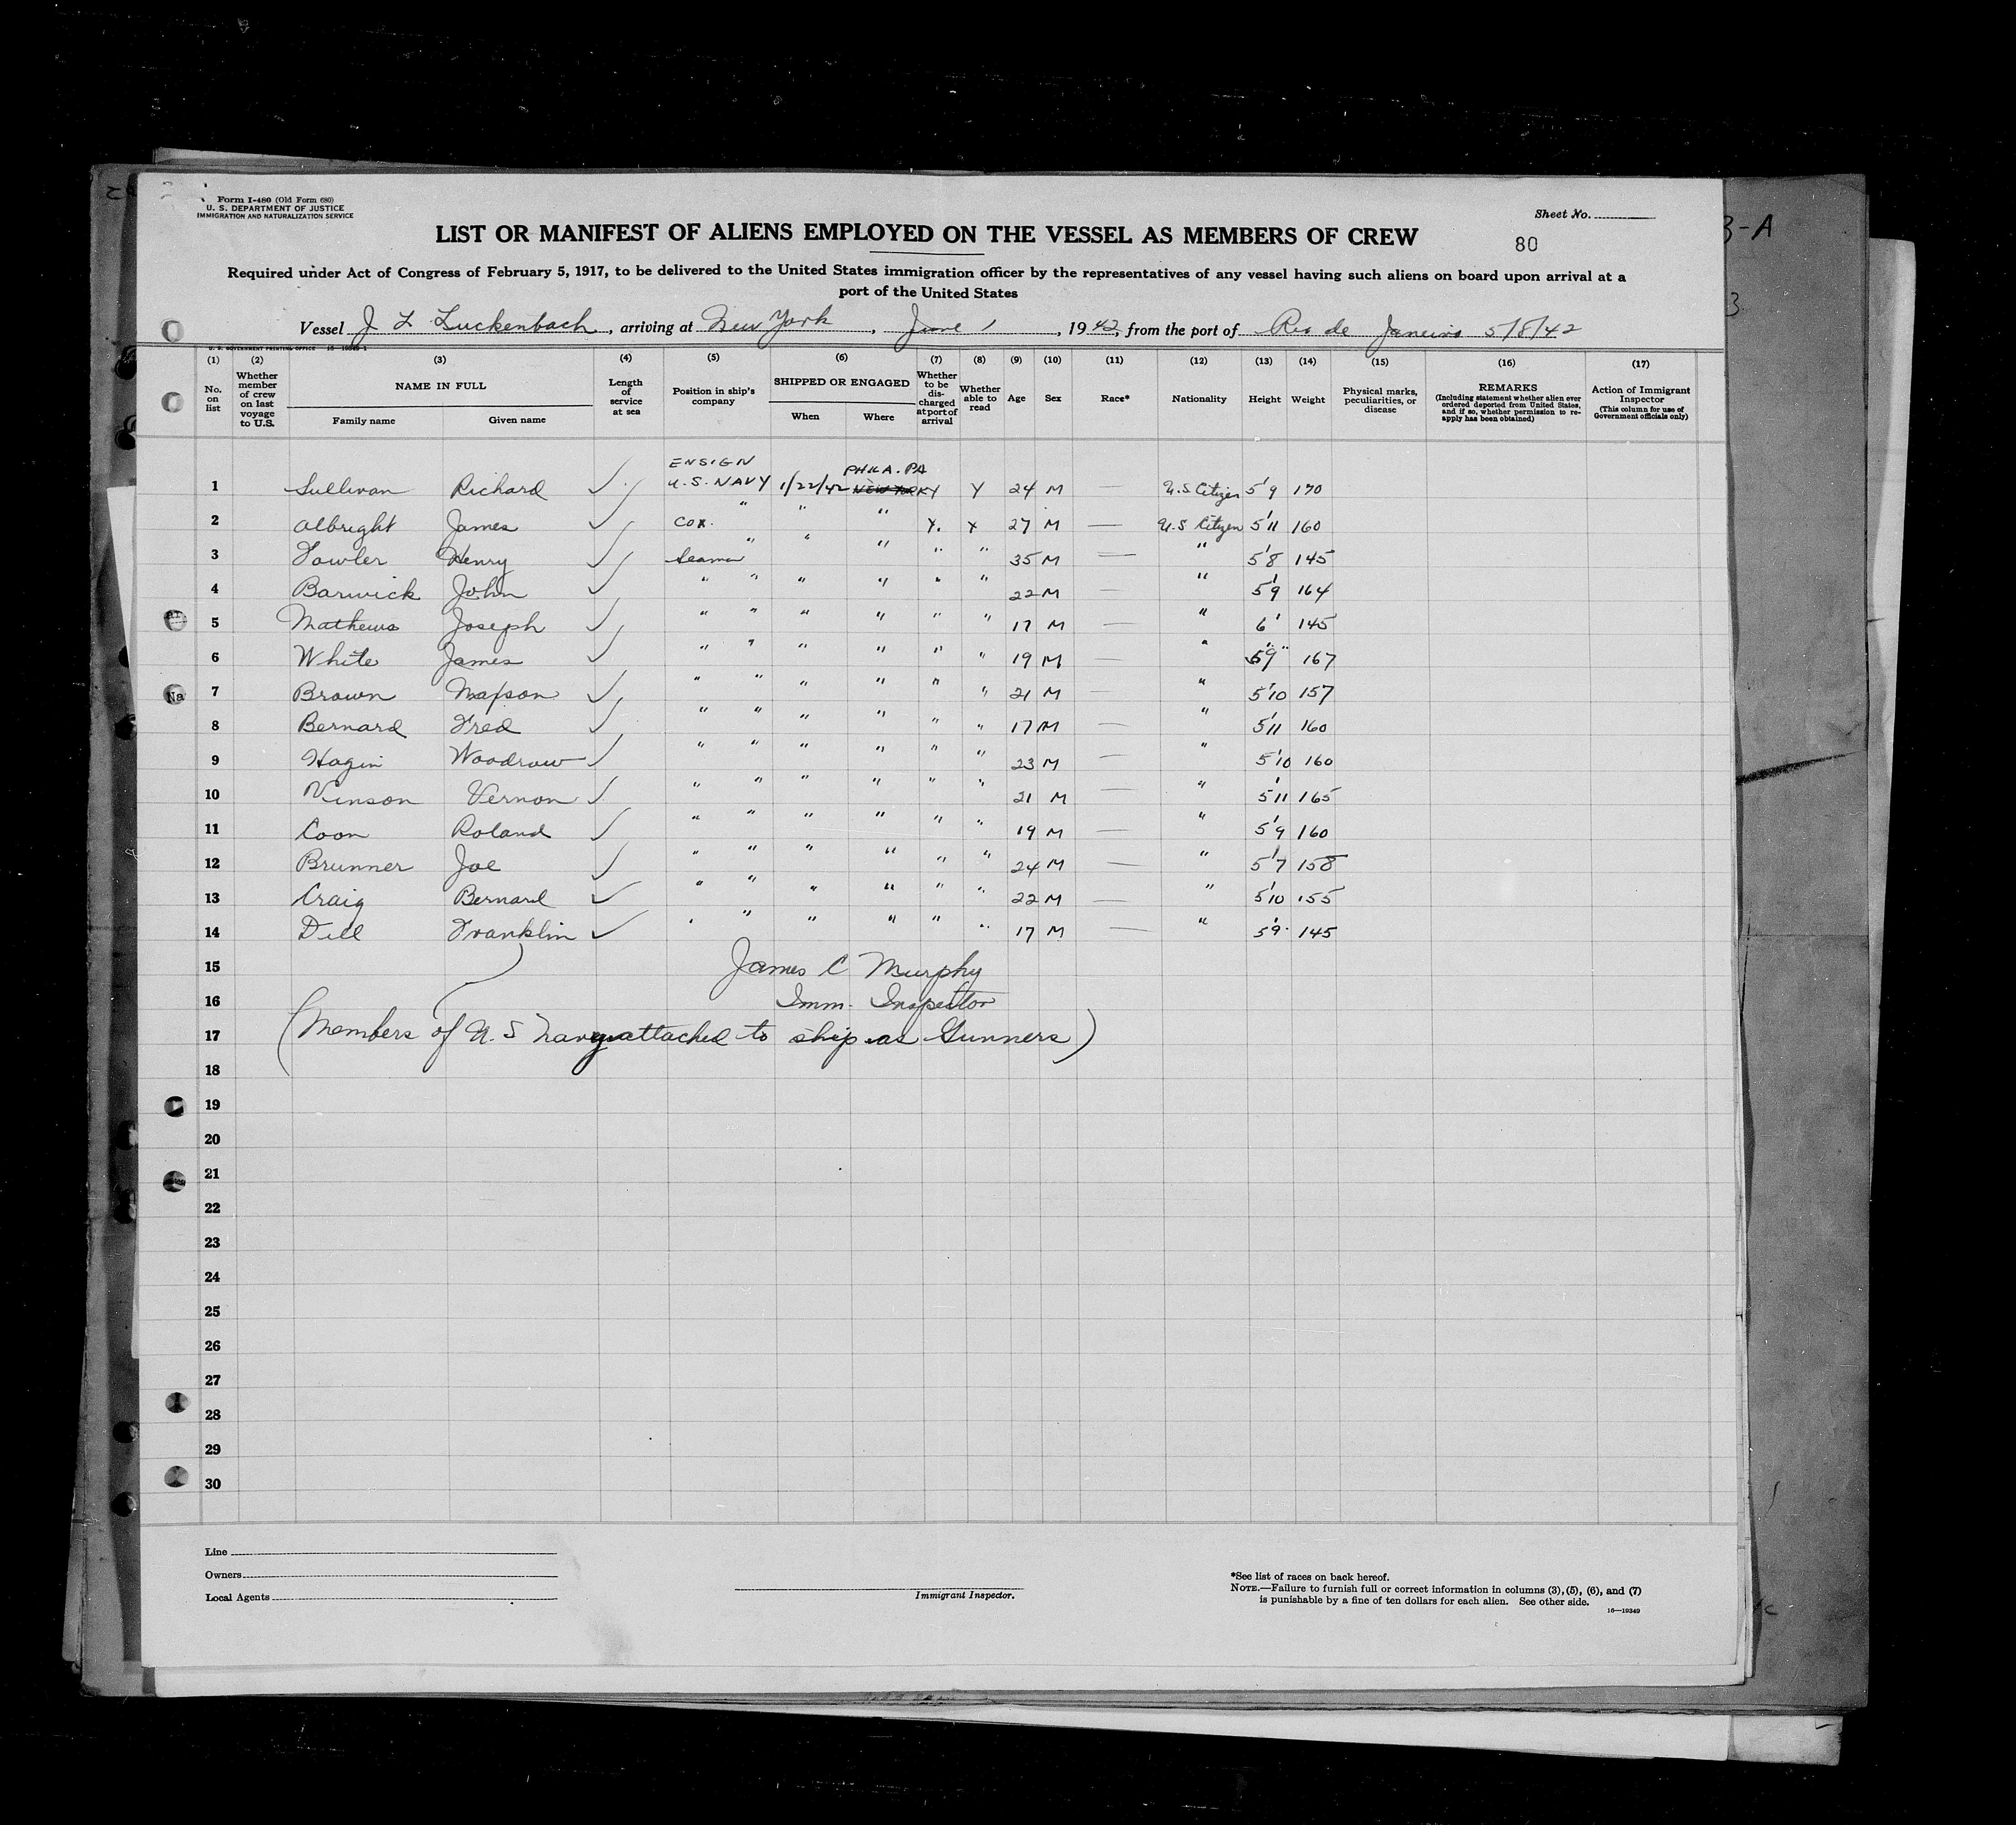 Form I-480 (Old Form 680)
U. S. DEPARTMENT OF JUSTICE
IMMIGRATION AND NATURALIZATION SERVICE
Sheet No.
LIST OR MANIFEST OF ALIENS EMPLOYED ON THE VESSEL AS MEMBERS OF CREW
80
3-A
Required under Act of Congress of February 5, 1917, to be delivered to the United States immigration officer by the representatives of any vessel having such aliens on board upon arrival at a
port of the United States
3
Vessel J L Luckenbach, arriving at New York, June 1, 1942, from the port of Rio de Janeiro 5/8/42
U. S. GOVERNMENT PRINTING OFFICE
(1) (2) (3) (4) (5) (6) (7) (8) (9) (10) (11) (12) (13) (14) (15) (16) (17)
No. on list
Whether member of crew on last voyage to U.S.
NAME IN FULL
Family name Given name
Length of service at sea
Position in ship's company
SHIPPED OR ENGAGED
When Where
Whether to be discharged at port of arrival
Whether able to read
Age
Sex
Race*
Nationality
Height
Weight
Physical marks, peculiarities, or disease
REMARKS
(Including statement whether alien ever ordered deported from United States, and if so, whether permission to reapply has been obtained)
Action of Immigrant Inspector
(This column for use of Government officials only)
ENSIGN PHILA. PA
1 Sullivan Richard ✓ U.S. NAVY 1/22/42 NEW YORK Y Y 24 M — U.S Citizen 5'9 170
2 Albright James ✓ Cox. " " " Y. Y 27 M — U.S Citizen 5'11 160
3 Fowler Henry ✓ Seaman " " " " " 35 M — " 5'8 145
4 Barwick John ✓ " " " " " " 22 M — " 5'9 164
5 Mathews Joseph ✓ " " " " " " 17 M — " 6' 145
6 White James ✓ " " " " " " 19 M — " 5'9" 167
7 Brown Mapson ✓ " " " " " " 21 M — " 5'10 157
8 Bernard Fred ✓ " " " " " " 17 M — " 5'11 160
9 Hagin Woodrow ✓ " " " " " " 23 M — " 5'10 160
10 Vinson Vernon ✓ " " " " " " 21 M — " 5'11 165
11 Coon Roland ✓ " " " " " " 19 M — " 5'9 160
12 Brunner Joe ✓ " " " " " " 24 M — " 5'7 158
13 Craig Bernard ✓ " " " " " " 22 M — " 5'10 155
14 Dill Franklin ✓ " " " " " " 17 M — " 5'9 145
15 James C Murphy
16 Imm. Inspector
17 (Members of U.S Navy attached to ship as Gunners)
18
19
20
21
22
23
24
25
26
27
28
29
30
Line
Owners
Local Agents
Immigrant Inspector.
*See list of races on back hereof.
NOTE.—Failure to furnish full or correct information in columns (3), (5), (6), and (7)
is punishable by a fine of ten dollars for each alien. See other side.
16—19349